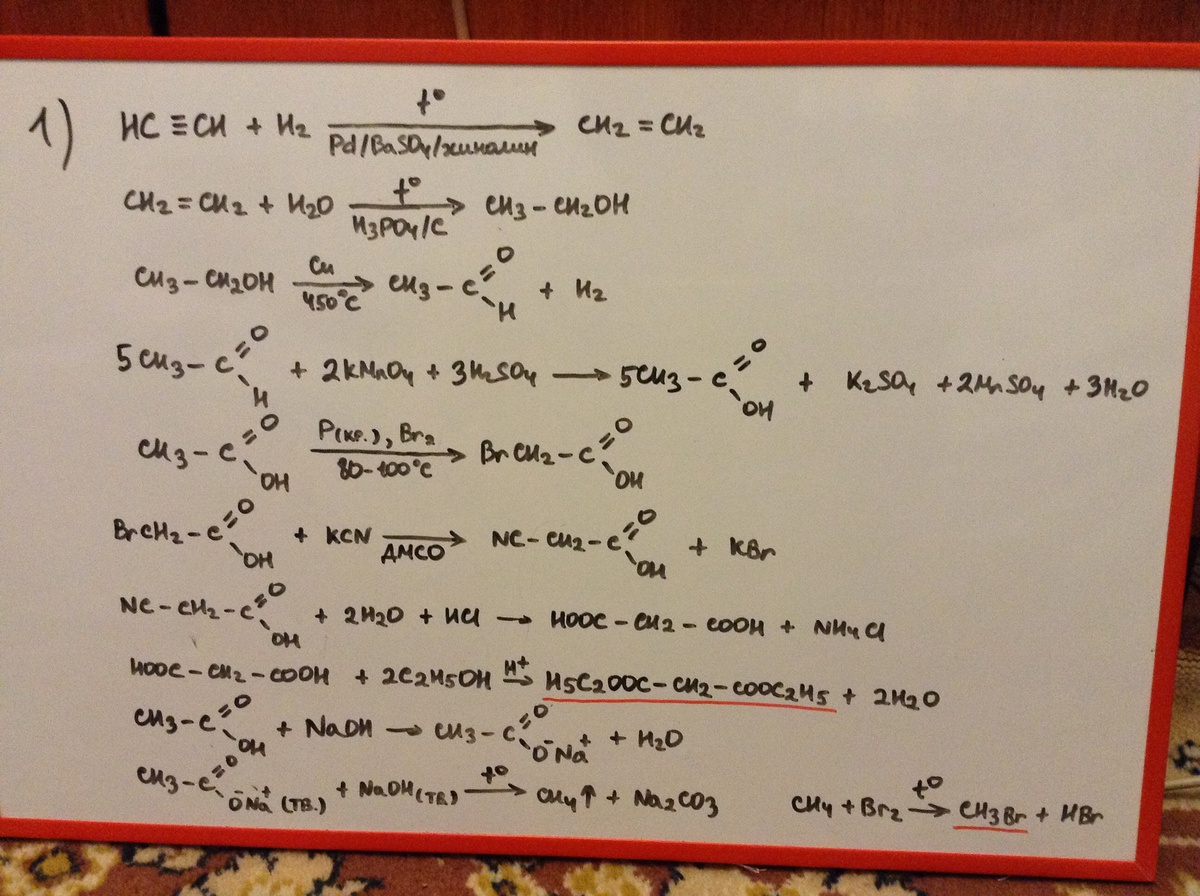 1) HC≡CH + H2 —t°, Pd/BaSO4/хинолин→ CH2=CH2
CH2=CH2 + H2O —t°, H3PO4/C→ CH3-CH2OH
CH3-CH2OH —Cu, 450°C→ CH3-C(=O)-H + H2
5CH3-C(=O)-H + 2KMnO4 + 3H2SO4 → 5CH3-C(=O)-OH + K2SO4 + 2MnSO4 + 3H2O
CH3-C(=O)-OH —P(кр.), Br2, 80-100°C→ BrCH2-C(=O)-OH
BrCH2-C(=O)-OH + KCN —ДМСО→ NC-CH2-C(=O)-OH + KBr
NC-CH2-C(=O)-OH + 2H2O + HCl → HOOC-CH2-COOH + NH4Cl
HOOC-CH2-COOH + 2C2H5OH —H+→ H5C2OOC-CH2-COOC2H5 + 2H2O
CH3-C(=O)-OH + NaOH → CH3-C(=O)-O-Na+ + H2O
CH3-C(=O)-O-Na+ (ТВ.) + NaOH(ТВ.) —t°→ CH4↑ + Na2CO3 CH4 + Br2 —t°→ CH3Br + HBr